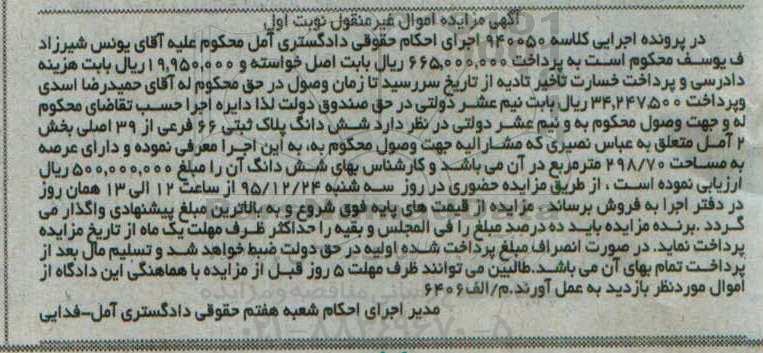 آگهی مزایده اموال غیرمنقول نوبت اول
در پرونده اجرایی کلاسه ۹۴۰۰۵۰ اجرای احکام حقوقی دادگستری آمل محکوم علیه آقای یونس شیرزاد
ف یوسف محکوم است به پرداخت ۶۶۵,۰۰۰,۰۰۰ ریال بابت اصل خواسته و ۱۹,۹۵۰,۰۰۰ ریال بابت هزینه
دادرسی و پرداخت خسارت تاخیر تادیه از تاریخ سررسید تا زمان وصول در حق محکوم له آقای حمیدرضا اسدی
وپرداخت ۳۴,۲۴۷,۵۰۰ ریال بابت نیم عشر دولتی در حق صندوق دولت لذا دایره اجرا حسب تقاضای محکوم
له و جهت وصول محکوم به و نیم عشر دولتی در نظر دارد شش دانگ پلاک ثبتی ۶۶ فرعی از ۳۹ اصلی بخش
۲ آمل متعلق به عباس نصیری که مشارالیه جهت وصول محکوم به، به این اجرا معرفی نموده و دارای عرصه
به مساحت ۲۹۸/۷۰ مترمربع در آن می باشد و کارشناس بهای شش دانگ آن را مبلغ ۵۰۰,۰۰۰,۰۰۰ ریال
ارزیابی نموده است ، از طریق مزایده حضوری در روز سه شنبه ۹۵/۱۲/۲۴ از ساعت ۱۲ الی ۱۳ همان روز
در دفتر اجرا به فروش برساند. مزایده از قیمت های پایه فوق شروع و به بالاترین مبلغ پیشنهادی واگذار می
گردد .برنده مزایده باید ده درصد مبلغ را فی المجلس و بقیه را حداکثر ظرف مهلت یک ماه از تاریخ مزایده
پرداخت نماید. در صورت انصراف مبلغ پرداخت شده اولیه در حق دولت ضبط خواهد شد و تسلیم مال بعد از
پرداخت تمام بهای آن می باشد.طالبین می توانند ظرف مهلت ۵ روز قبل از مزایده با هماهنگی این دادگاه از
اموال موردنظر بازدید به عمل آورند.م/الف۶۴۰۶
مدیر اجرای احکام شعبه هفتم حقوقی دادگستری آمل-فدایی